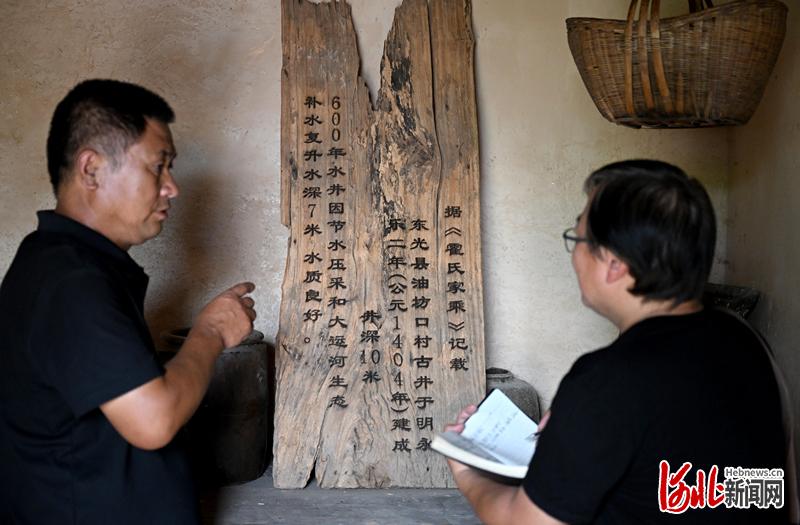 据《霍氏家乘》记载
东光县油坊口村古井于明永
乐二年(公元1404年)建成
井深10米
600年水井因节水压采和大运河生态
补水复升水深7米 水质良好。
Hebnews.cn
河北新闻网